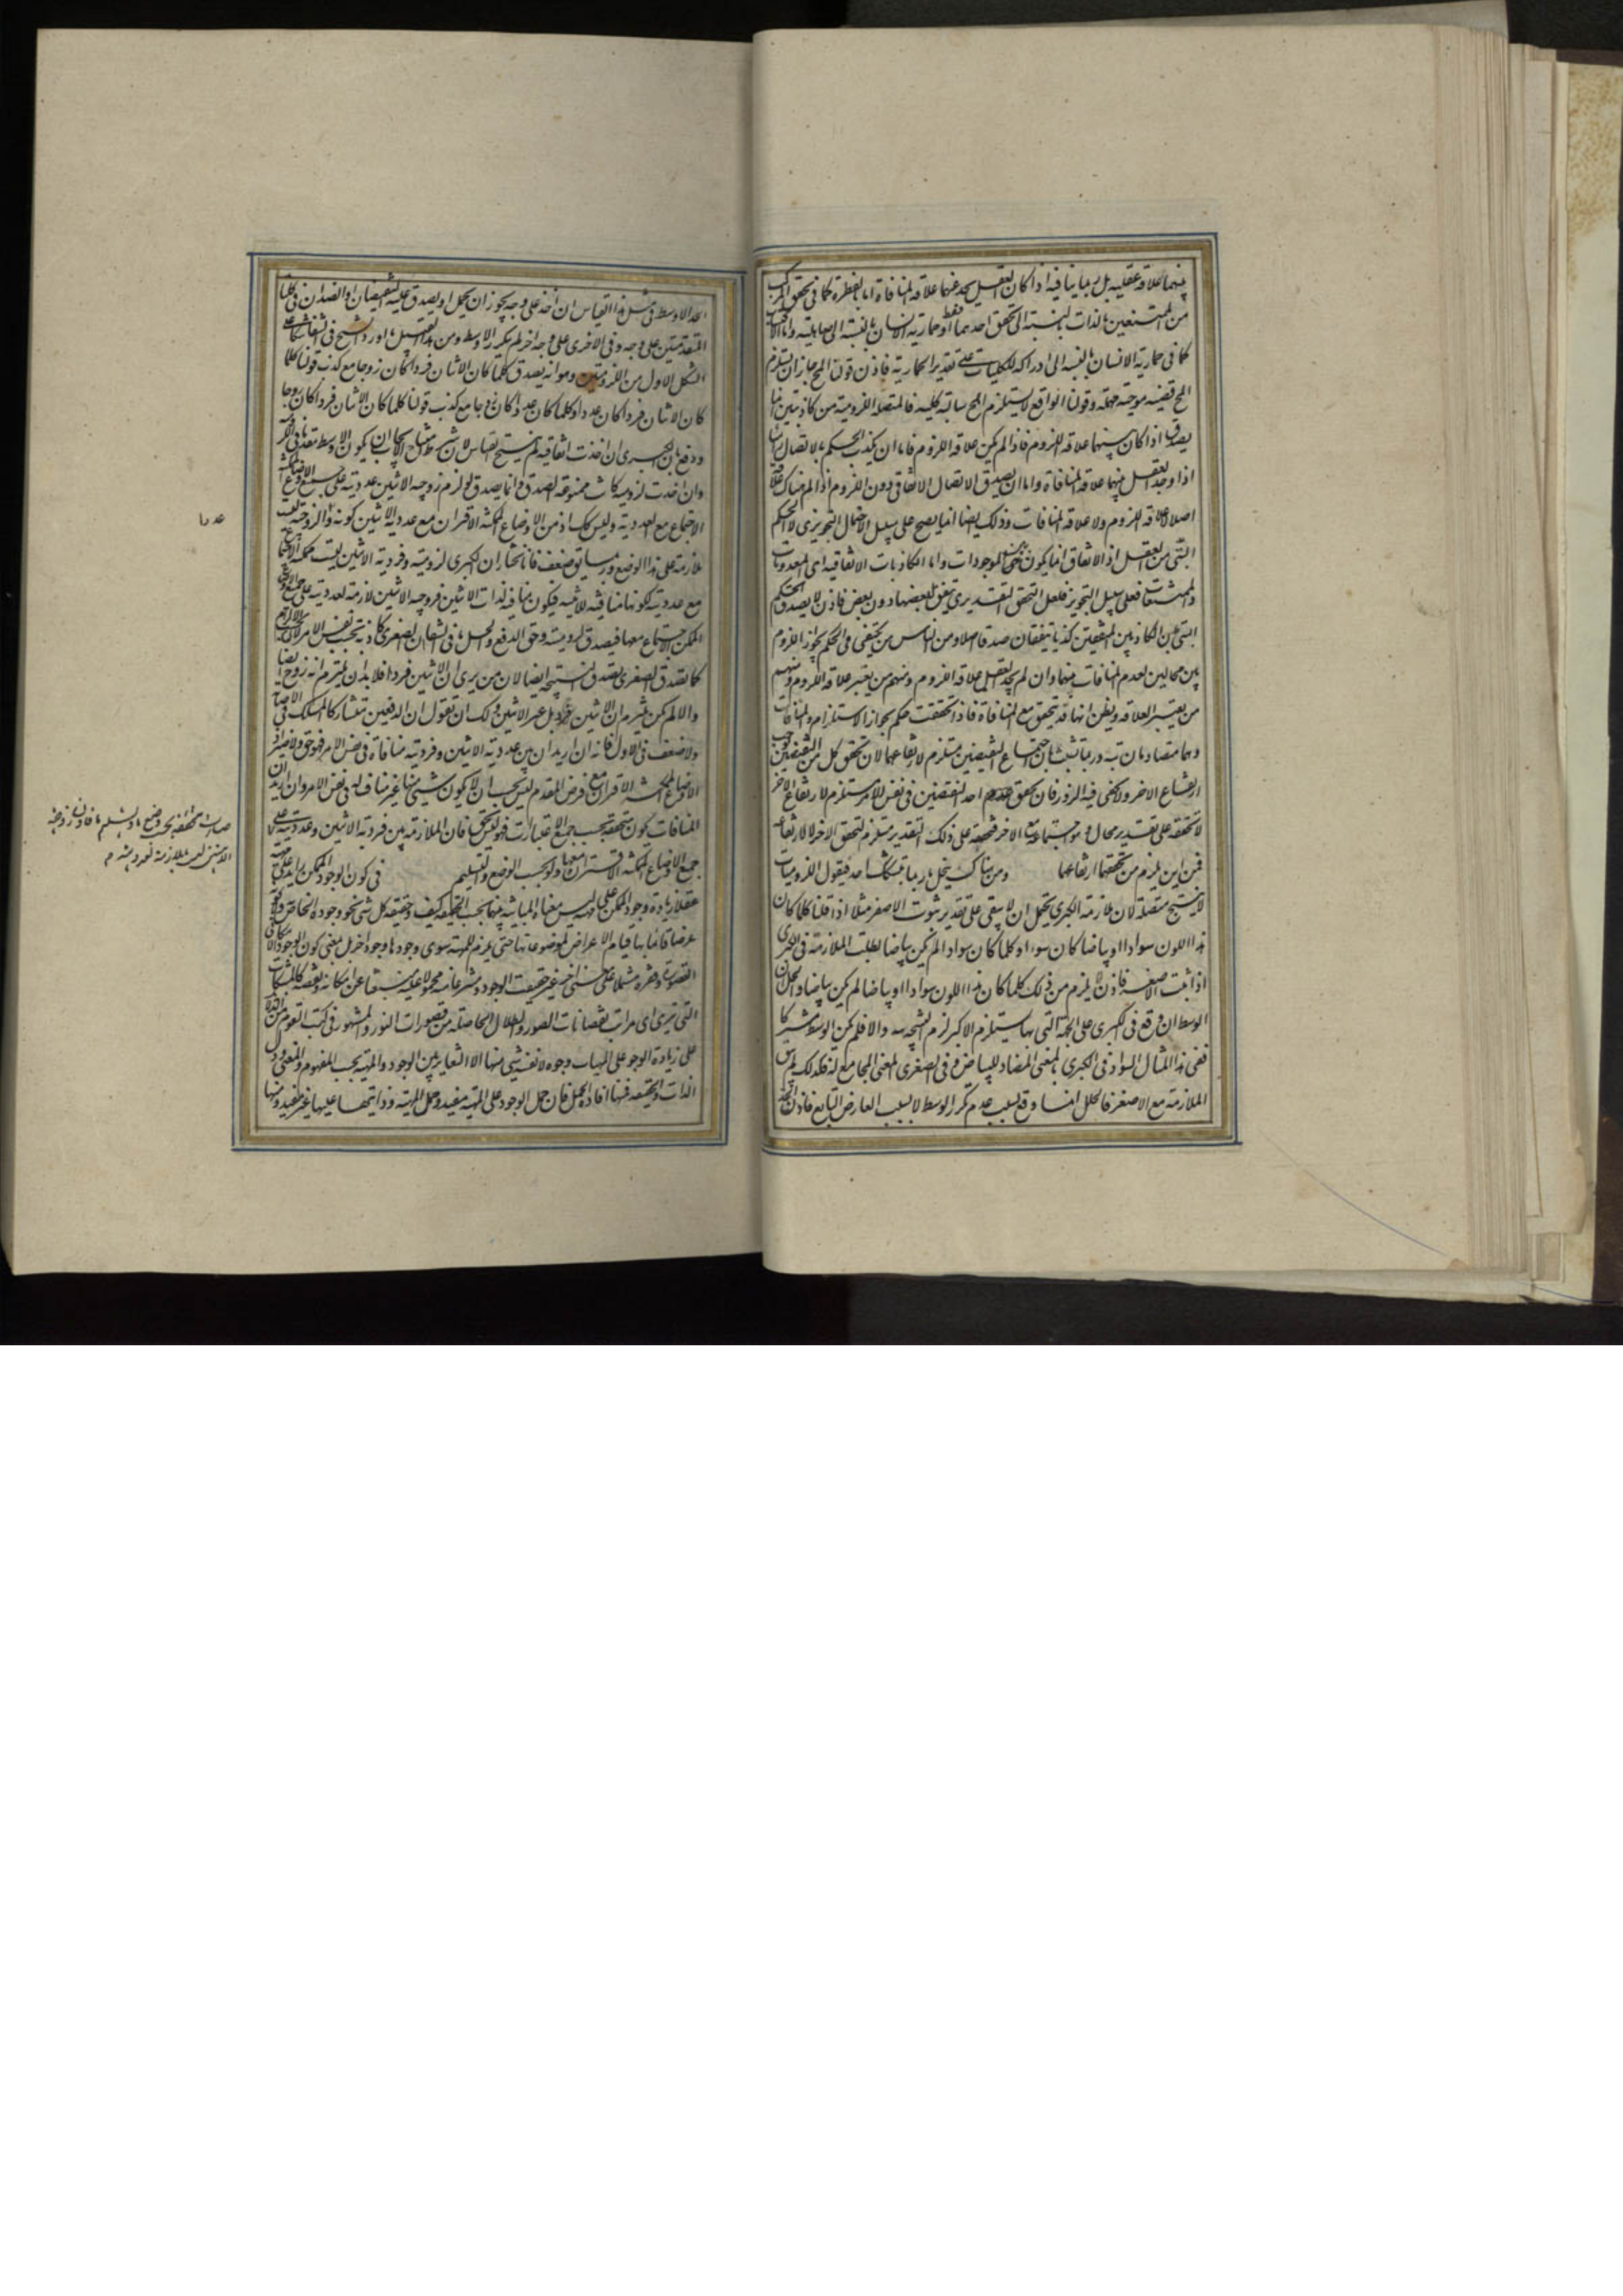 بينهما علاقة عقلية بل ربما ينافيه اذا كان العقل يجد بينهما علاقة المنافاة اما بالفطرة كما فى تحقق المركب
من الممتنعين بالذات بالنسبة الى تحقق احدهما فقط او حمارية الانسان بالنسبة الى صاهليته واما
كما فى حمارية الانسان بالنسبة الى ادراكه للكليات على تقدير الحمارية فاذن قولنا المح جاز ان يستلزم
المح قضية موجبة مهملة وقولنا الواقع لا يستلزم المح سالبة كلية فالمتصلة اللزومية من كاذبتين انما
يصدق اذا كان بينهما علاقة اللزوم فاذا لم يكن علاقة اللزوم فاما ان يكذب الحكم بالاتصال
اذا وجد العقل بينهما علاقة المنافاة واما ان يصدق الاتصال الاتفاقى دون اللزوم اذا لم هناك علاقة
اصلا لا علاقة اللزوم ولا علاقة المنافات وذلك ايضا انما يصح على سبيل الاحتمال التجويزى لا الحكم
البتى من العقل اذ الاتفاق انما يكون بين الموجودات واما الكاذبات الاتفاقية اى المعدومات
والممتنعات فعلى سبيل التجويز فلعل التحقق التقديرى يتفق لبعضها دون بعض فاذن لا يصدق الحكم
البتى بان الكاذبين المتفقين كذبا يتفقان صدقا اصلا ومن الناس من يكتفى فى الحكم بجواز اللزوم
بين محالين لعدم المنافات بينهما وان لم يجد العقل علاقة اللزوم ومنهم من يعتبر علاقة اللزوم ومنهم
من يعتبر العلاقة ويظن انها قد يتحقق مع المنافاة فاذا تحققت حكم بجواز الاستلزام والمنافات
وهما متصادمان بتة وربما تشبث بان اجتماع النقيضين مستلزم لارتفاعهما لان تحقق كل من النقيضين يوجب
ارتفاع الاخر ولا يخفى فيه الزور فان تحقق احد النقيضين فى نفس الامر مستلزم لارتفاع الاخر
لا تحققه على تقدير محال هو اجتماعه مع الاخر فتحققه على ذلك التقدير مستلزم لتحقق الاخر لا لارتفاعه
فمن اين يلزم من تحققهما ارتفاعهما ومن هناك ينحل ربما يتشكك احد فيقول اللزوميات
لا ينتج متصلة لان ملازمة الكبرى يحتمل ان لا يبقى على تقدير ثبوت الاصغر مثلا اذا قلنا كلما كان
هذا اللون سوادا او بياضا كان سوادا وكلما كان سوادا لم يكن بياضا بطلت الملازمة فى الكبرى
اذا ثبت الاصغر فاذن لا يلزم من ذلك كلما كان هذا اللون سوادا او بياضا لم يكن بياضا والحل ان
الوسط ان وقع فى الكبرى على الجهة التى بها يستلزم الاكبر لزم النتيجة والا فلم يكن الوسط مشتركا
ففى هذا المثال السواد فى الكبرى بالمعنى المضاد للبياض وفى الصغرى بالمعنى المجامع له فلذلك لم يبق
الملازمة مع الاصغر فالخلل انما وقع بسبب عدم تكرر الوسط لا بسبب العارض التابع فاذن الحد
الحد الاوسط فى مثل هذا القياس ان اخذ على وجه يجوز ان يحمل او يصدق عليه النقيضان او الضدان فى كلتا
المتقدمتين على وجه وفى الاخرى على وجه اخر لم يتكرر الاوسط ومن هذا القبيل ما اورد الشيخ فى الشفا شكا على
الشكل الاول من اللزوميتين وهو انه يصدق كلما كان الاثنان فردا كان زوجا مع كذب قولنا كلما
كان الاثنان فردا كان عددا وكلما كان عددا كان زوجا مع كذب قولنا كلما كان الاثنان فردا كان زوجا
ودفع بان الكبرى ان اخذت اتفاقية لم ينتج القياس لان شرط انتاج الايجاب ان يكون الاوسط مقدما فى
وان اخذت لزومية كانت ممنوعة الصدق وانما يصدق لو لزم زوجية الاثنين عدديته على جميع الاوضاع الممكنة
الاجتماع مع العددية وليس كك اذ من الاوضاع الممكنة الاقتران مع عددية الاثنين كونه فردا والزوجية ليست
لازمة على هذا الوضع وربما يتوضع فانا نختار ان الكبرى لزومية وفردية الاثنين ليست ممكنة الاجتماع
مع عدديته لكونها منافية للاثنينية فيكون منافية لذات الاثنين فزوجية الاثنين لازمة لعدديته على جميع الاوضاع
الممكنة الاجتماع معها فيصدق لزومية وحق الدفع والحل ما فى الشفا ان الصغرى كاذبة بحسب نفس الامر
كما تصدق الصغرى تصدق النتيجة ايضا لان من يرى ان الاثنين فرد فلابد ان يلتزم انه زوج ايضا
والا لم يكن يلتزم ان الاثنين فرد بل غير الاثنين ولك ان تقول ان الدفعين متشاركا المسلك فى
ولا ضعف فى الاول فانه ان اريد ان بين عددية الاثنين وفرديته منافاة فى نفس الامر فهو حق ولا
الاوضاع الممكنة الاقتران مع فرض المقدم ليس يجب ان لا يكون شيئ منها غير مناف له فى نفس الامر وان اريد ان
المنافات يكون متحققة بحسب جميع الاعتبارات فهو ليس بحق فان الملازمة بين فردية الاثنين وعدديته على
جميع الاوضاع الممكنة الاقتران معها ولو بحسب الوضع والتسليم فى كون الوجود الممكن زايدا على
عقلا زيادة وجود الممكن على مهيته ليس معناه المباينة بينهما بحسب الحقيقة كيف وحقيقة كل شئ نحو وجوده الخاص ولا كونه
عرضا قائما بها قيام الاعراض لموضوعاتها حتى يلزم للمهية سوى وجودها وجود اخر بل بمعنى كون الوجود الامكانى
لقصوره وفقره مشتملا على معنى اخر غير حقيقة الوجود منتزعا منه محمولا عليه منبعثا عن امكانه ونقصه كالمشبكات
التى يترى اى مراتب نقصانات الضوء والظلال الحاصلة من قصورات النور والمشهور فى كتب القوم من الدلائل
على زيادة الوجود على المهيات وجوه لا يفيد شئ منها الا التغاير بين الوجود والمهية بحسب المفهوم والمعنى دون
الذات والحقيقة فمنها افادة الحمل فان حمل الوجود على المهية مفيد وحمل المهية وذاتياتها عليها غير مفيد ومنها
عددا
الاثنين ليست بلازمة لعدديته م